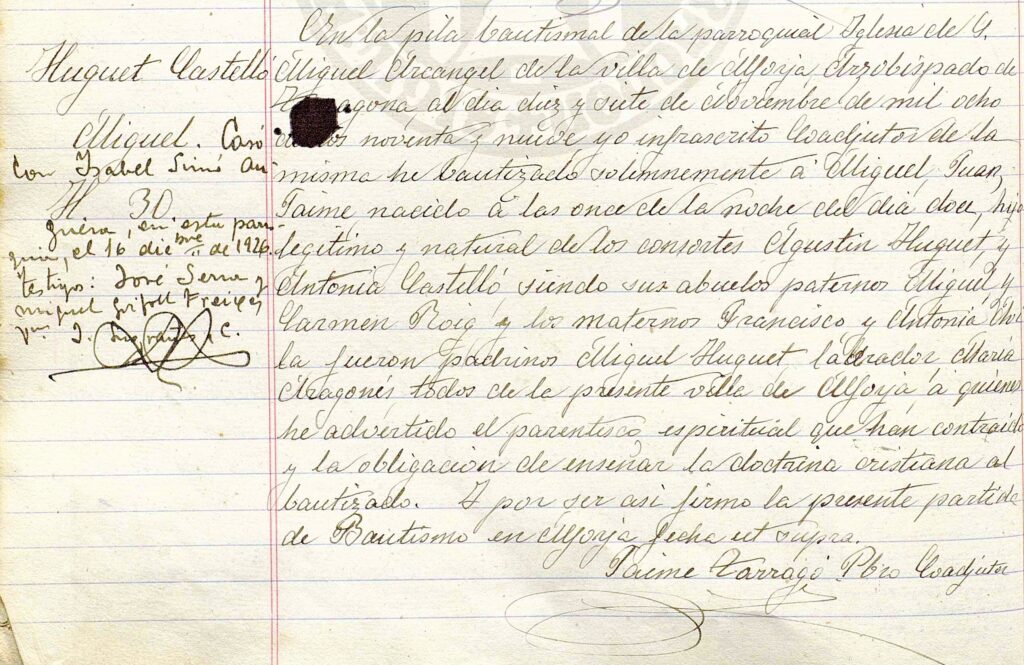 Huguet Castelló
Miguel. Casó
con Isabel Simó An
N 30
guera, en esta parro-
quia, el 16 dicbre de 1926.
testigos: José Serra y
miguel Grifoll Freixes
J. C.
En la pila bautismal de la parroquial Iglesia de S.
Miguel Arcangel de la villa de Alforja Arzobispado de
Tarragona al dia diez y siete de Noviembre de mil ocho
noventa y nueve yo infrascrito Coadjutor de la
misma he bautizado solemnemente á Miguel, Juan,
Jaime nacido á las once de la noche del dia doce, hijo
legitimo y natural de los consortes Agustin Huguet y
Antonia Castelló siendo sus abuelos paternos Miguel y
Carmen Roig y los maternos Francisco y Antonia
la fueron padrinos Miguel Huguet labrador Maria
Aragonés todos de la presente villa de Alforja á quienes
he advertido el parentisco espiritual que han contraido
y la obligacion de enseñar la doctrina cristiana al
bautizado. Y por ser asi firmo la presente partida
de Bautismo en Alforja fecha ut supra.
Jaime Tarragó Pbro Coadjutor